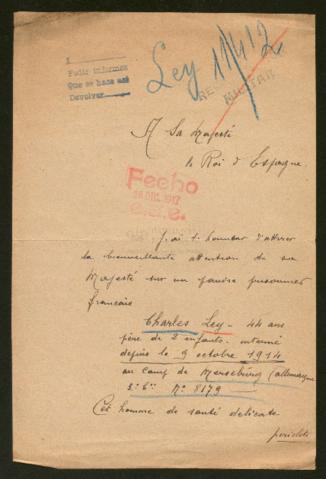 1
Pedir informes
Que se hace así
Devolver
Ley 11412
MILITAR
A Sa Majesté
le Roi d'Espagne
Fecho
1917
J'ai l'honneur d'attirer
la bienveillante attention de sa
Majesté sur un pauvre prisonnier
français
Charles Ley - 44 ans
père de 2 enfants - interné
depuis le 9 octobre 1914
au camp de Merseburg (allemagne
Nº 8179
Cet homme de santé délicate